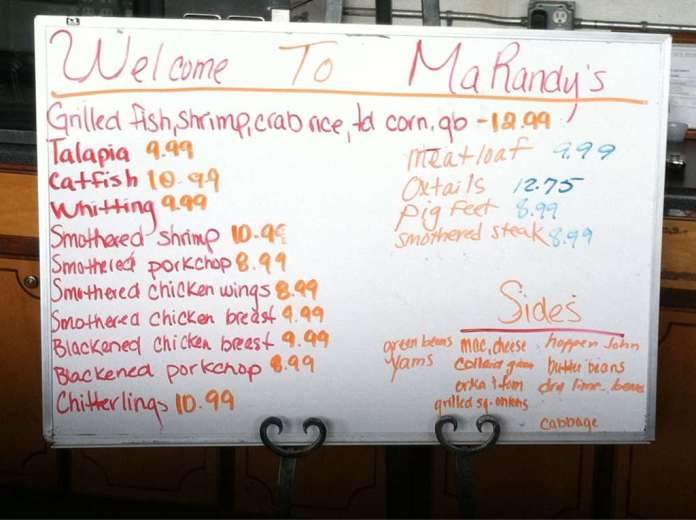 Welcome To MaRandy's
Grilled fish,shrimp,crab rice, td corn.gb -12.99
Talapia 9.99
Catfish 10.99
Whitting 9.99
Smothered shrimp 10.99
Smothered porkchop 8.99
Smothered chicken wings 8.99
Smothered chicken breast 9.99
Blackened chicken breast 9.99
Blackened porkchop 8.99
Chitterlings 10.99
meatloaf 9.99
Oxtails 12.75
pig feet 8.99
smothered steak 8.99
Sides
green beans
yams
mac, cheese
collard green
orka + tom
grilled sq. onions
hoppen John
butter beans
dry lime beans
cabbage